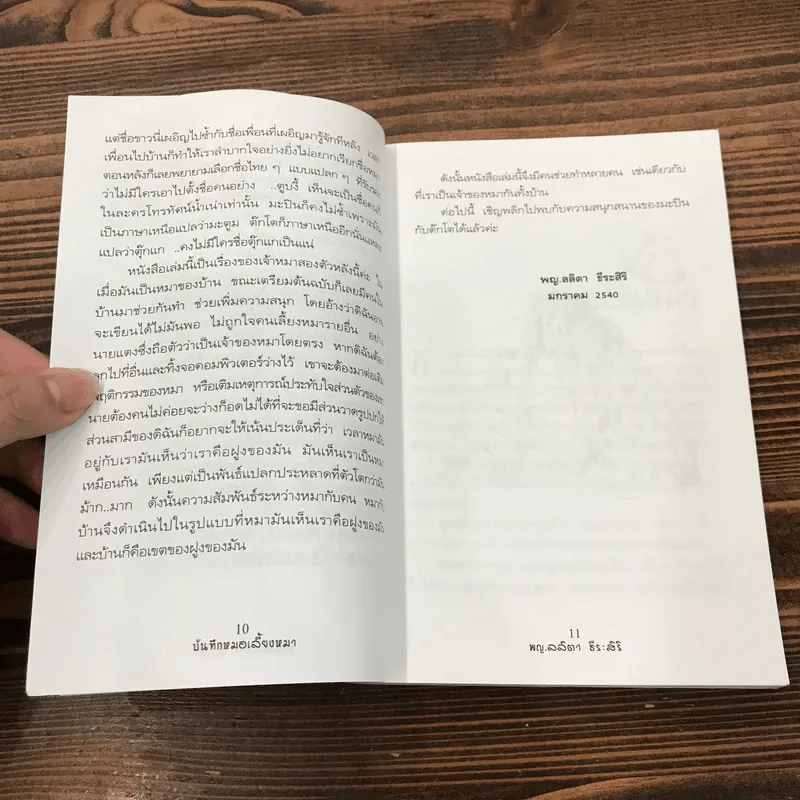 แต่ชื่อขาวนี่เผอิญไปซ้ำกับชื่อเพื่อนที่เผอิญมารู้จักทีหลัง
เพื่อนไปบ้านก็ทำให้เราลำบากใจอย่างยิ่งไม่อยากเรียกชื่อหมา
ตอนหลังก็เลยพยายามเลือกชื่อไทย ๆ แบบแปลก ๆ ที่
ว่าไม่มีใครเอาไปตั้งชื่อคนอย่าง ..ตูบงี้ เห็นจะเป็นชื่อคน
ในละครโทรทัศน์น้ำเน่าเท่านั้น มะปินก็คงไม่ซ้ำเพราะมัน
เป็นภาษาเหนือแปลว่ามะตูม ต๊กโตก็ภาษาเหนืออีกนั่นแหละ
แปลว่าตุ๊กแก ..คงไม่มีใครชื่อตุ๊กแกเป็นแน่
หนังสือเล่มนี้เป็นเรื่องของเจ้าหมาสองตัวหลังนี้ค่ะ ใน
เมื่อมันเป็นหมาของบ้าน ขณะเตรียมต้นฉบับก็เลยมีคนใน
บ้านมาช่วยกันทำ ช่วยเพิ่มความสนุก โดยอ้างว่าดิฉันอาจ
จะเขียนได้ไม่มันพอ ไม่ถูกใจคนเลี้ยงหมารายอื่น อย่าง
นายแตงซึ่งถือตัวว่าเป็นเจ้าของหมาโดยตรง หากดิฉันต้อง
ลุกไปที่อื่นและทิ้งจอคอมพิวเตอร์ว่างไว้ เขาจะต้องมาต่อเติม
พฤติกรรมของหมา หรือเติมเหตุการณ์ประทับใจส่วนตัวของเขา
นายต้องคนไม่ค่อยจะว่างก็อดไม่ได้ที่จะขอมีส่วนวาดรูปปกให้
ส่วนสามีของดิฉันก็อยากจะให้เน้นประเด็นที่ว่า เวลาหมามัน
อยู่กับเรามันเห็นว่าเราคือฝูงของมัน มันเห็นเราเป็นหมา
เหมือนกัน เพียงแต่เป็นพันธ์แปลกประหลาดที่ตัวโตกว่ามัน
ม้าก..มาก ดังนั้นความสัมพันธ์ระหว่างหมากับคน หมากับ
บ้านจึงดำเนินไปในรูปแบบที่หมามันเห็นเราคือฝูงของมัน
และบ้านก็คือเขตของฝูงของมัน
10
บันทึกหมอเลี้ยงหมา
ดังนั้นหนังสือเล่มนี้จึงมีคนช่วยทำหลายคน เช่นเดียวกับ
ที่เราเป็นเจ้าของหมากันทั้งบ้าน
ต่อไปนี้ เชิญพลิกไปพบกับความสนุกสนานของมะปิน
กับต๊กโตได้แล้วค่ะ
พญ.ลลิตา ธีระสิริ
มกราคม 2540
11
พญ.ลลิตา ธีระสิริ